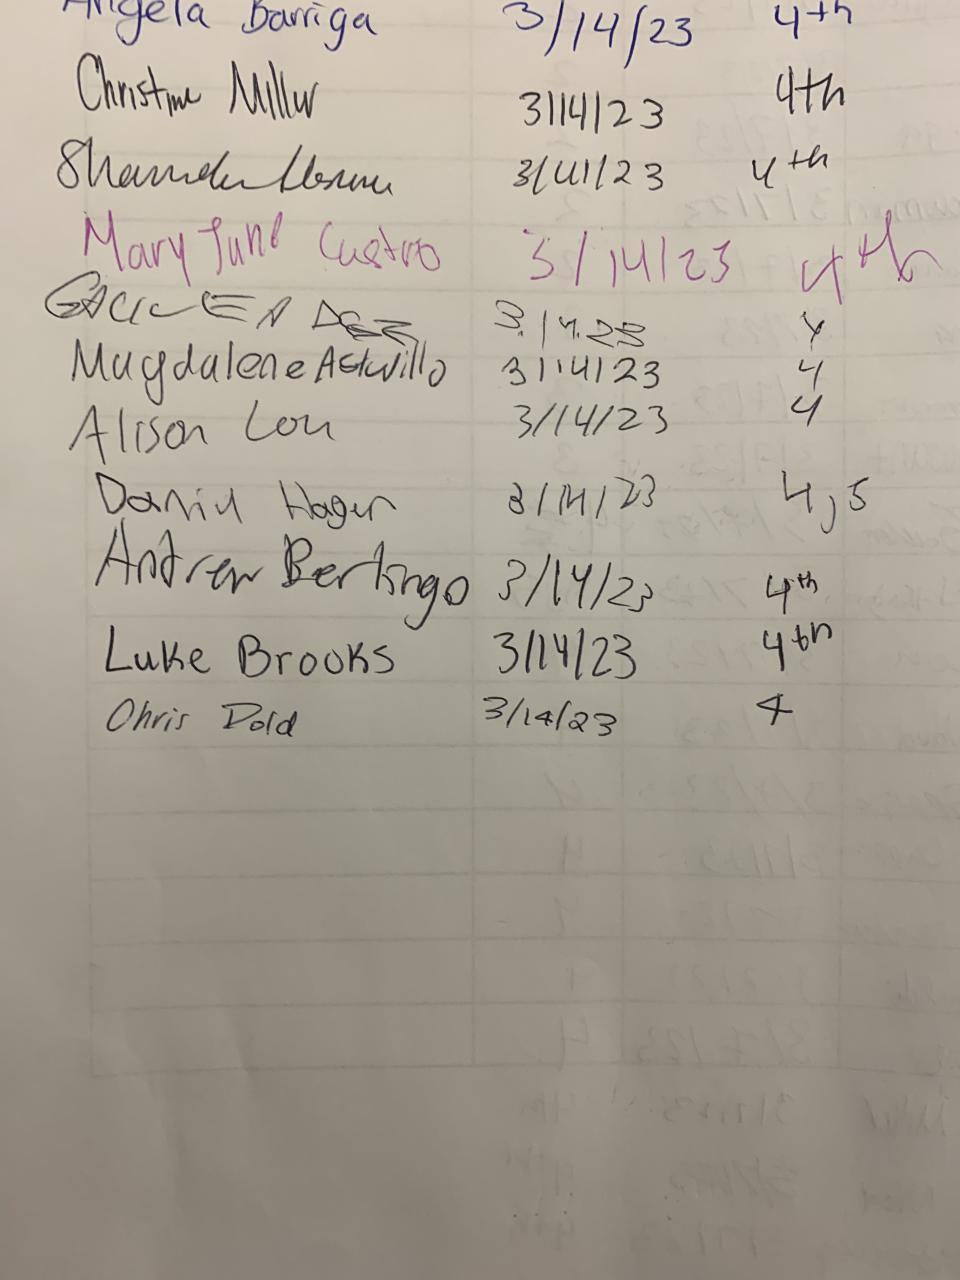 Angela Barriga 3/14/23 4th
Christine Miller 3/14/23 4th
3/141/23 4th
Mary June Castro 3/14/23 4th
3.14.23 4
Magdalene Astudillo 3/14/23 4
Alison Lou 3/14/23 4
Daniel Hagen 3/14/23 4,5
Andrew Bertingo 3/14/23 4th
Luke Brooks 3/14/23 4th
Chris Dold 3/14/23 4